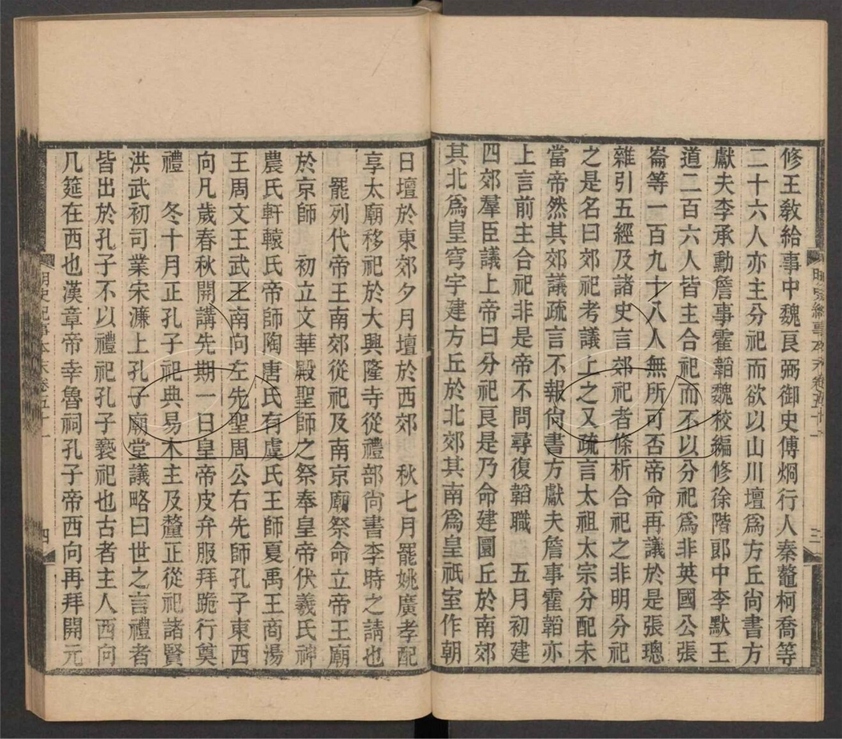 修王敎給事中魏良弼御史傅炯行人秦鼇柯喬等
二十六人亦主分祀而欲以山川壇爲方丘尙書方
獻夫李承勳詹事霍韜魏校編修徐階郞中李默王
道二百六人皆主合祀而不以分祀爲非英國公張
崙等一百九十八人無所可否帝命再議於是張璁
雜引五經及諸史言郊祀者條析合祀之非明分祀
之是名曰郊祀考議上之又疏言太祖太宗分配未
當帝然其郊議疏言不報尙書方獻夫詹事霍韜亦
上言前主合祀非是帝不問尋復韜職　五月初建
四郊羣臣議上帝曰分祀良是乃命建圜丘於南郊
其北爲皇穹宇建方丘於北郊其南爲皇祇室作朝
三
日壇於東郊夕月壇於西郊　秋七月罷姚廣孝配
享太廟移祀於大興隆寺從禮部尙書李時之請也
罷列代帝王南郊從祀及南京廟祭命立帝王廟
於京師　初立文華殿聖師之祭奉皇帝伏羲氏神
農氏軒轅氏帝師陶唐氏有虞氏王師夏禹王商湯
王周文王武王南向左先聖周公右先師孔子東西
向凡歲春秋開講先期一日皇帝皮弁服拜跪行奠
禮　冬十月正孔子祀典易木主及釐正從祀諸賢
洪武初司業宋濂上孔子廟堂議略曰世之言禮者
皆出於孔子不以禮祀孔子褻祀也古者主人西向
几筵在西也漢章帝幸魯祠孔子帝西向再拜開元
明史紀事本末卷五十一
四